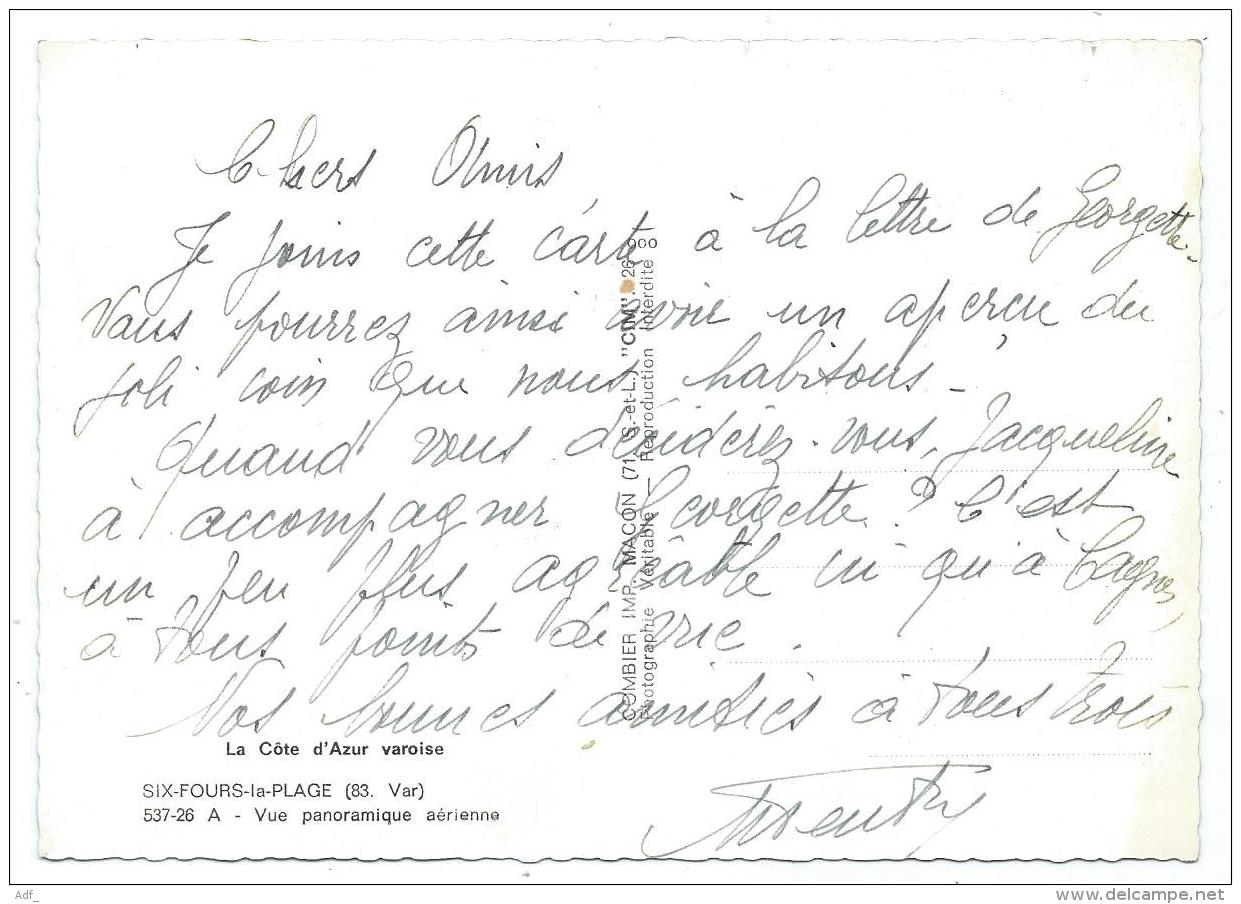 Chers Amis
Je joins cette carte à la lettre de Georgette.
Vous pourrez ainsi avoir un aperçu du
joli coin que nous habitons -
Quand vous déciderez-vous, Jacqueline
à accompagner Georgette ? C'est
un peu plus agréable ici qu'à Cagnes,
à tous points de vue.
Nos bonnes amitiés à tous trois
La Côte d'Azur varoise
SIX-FOURS-la-PLAGE (83. Var)
537-26 A - Vue panoramique aérienne
COMBIER IMP. MACON (71, S.-et-L.) "CIM". 26 000
Photographie Véritable — Reproduction Interdite
Adf_
www.delcampe.net